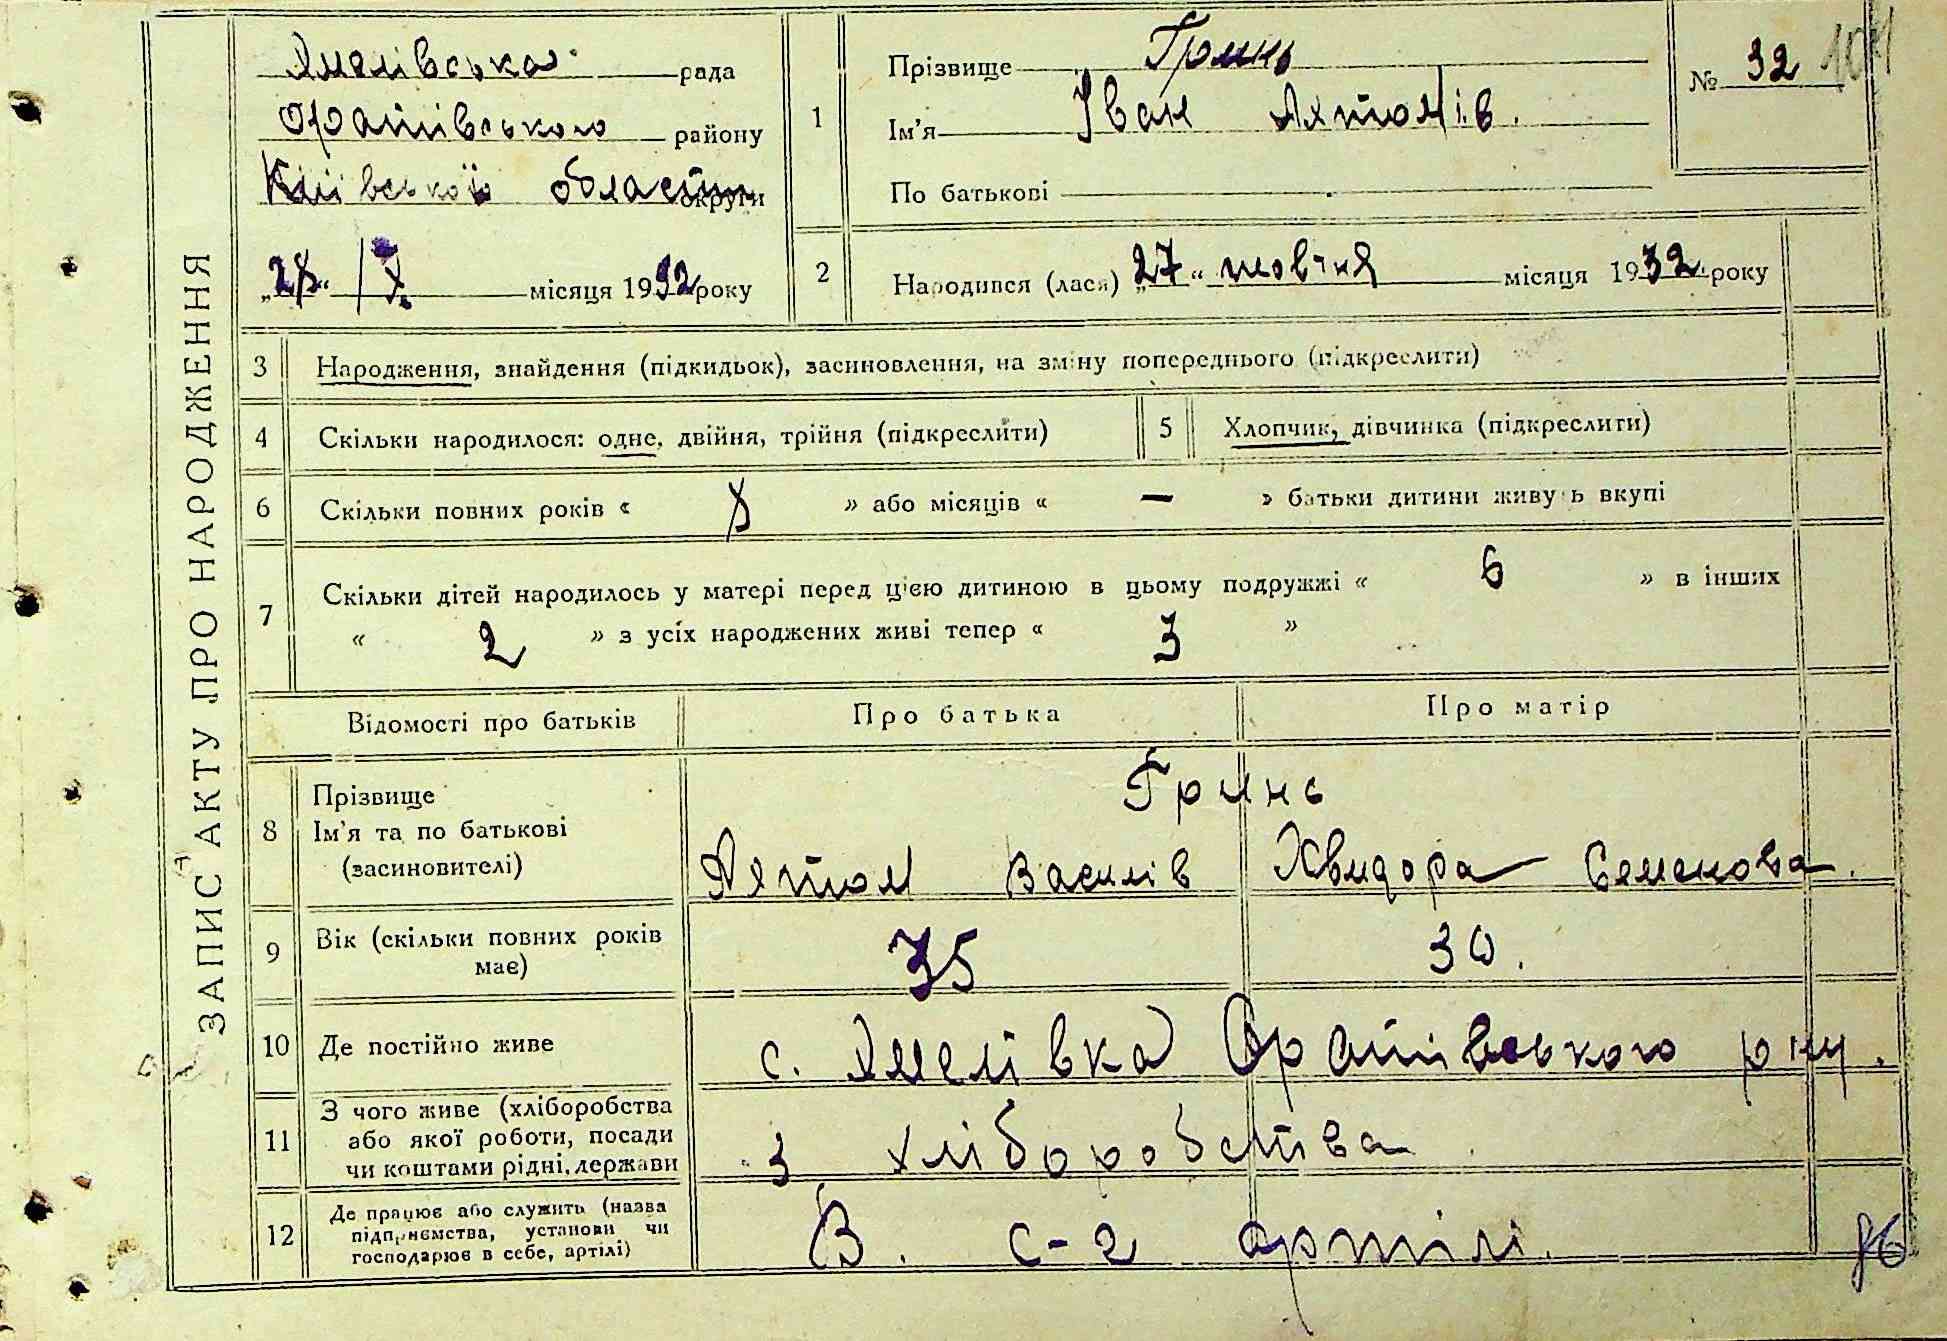 ЗАПИС АКТУ ПРО НАРОДЖЕННЯ
Ямелівська рада
Оратівського району
Київської області округи
"28" X місяця 1932 року
1 Прізвище Гринь
Ім'я Іван Антонів.
По батькові
№ 32
2 Народився (лася) "27" жовтня місяця 1932 року
3 Народження, знайдення (підкидьок), засиновлення, на зміну попереднього (підкреслити)
4 Скільки народилося: одне, двійня, трійня (підкреслити) 5 Хлопчик, дівчинка (підкреслити)
6 Скільки повних років « » або місяців « — » батьки дитини живуть вкупі
7 Скільки дітей народилось у матері перед цією дитиною в цьому подружжі « 6 » в інших
« 2 » з усіх народжених живі тепер « 3 »
Відомості про батьків Про батька Про матір
8 Прізвище Гринь
Ім'я та по батькові
(засиновителі) Антон Василів Хвидора Семенова.
9 Вік (скільки повних років 35 30.
має)
10 Де постійно живе с. Ямелівка Оратівського р-ну.
11 З чого живе (хліборобства
або якої роботи, посади з хліборобства
чи коштами рідні, держави
12 Де працює або служить (назва
підприємства, установи чи В. с-г артілі.
господарює в себе, артілі)
86